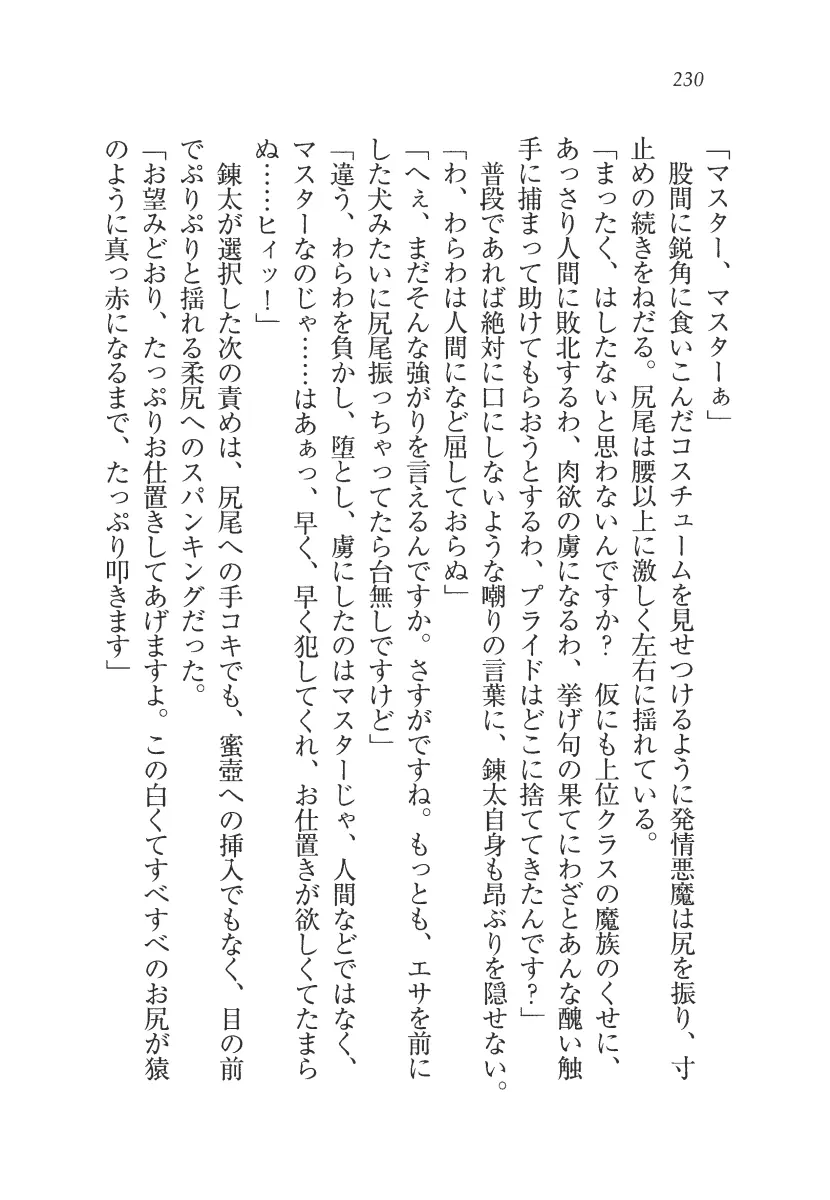 230
「マスター、マスターぁ」
　股間に鋭角に食いこんだコスチュームを見せつけるように発情悪魔は尻を振り、寸
止めの続きをねだる。尻尾は腰以上に激しく左右に揺れている。
「まったく、はしたないと思わないんですか？　仮にも上位クラスの魔族のくせに、
あっさり人間に敗北するわ、肉欲の虜になるわ、挙げ句の果てにわざとあんな醜い触
手に捕まって助けてもらおうとするわ、プライドはどこに捨ててきたんです？」
　普段であれば絶対に口にしないような嘲りの言葉に、錬太自身も昂ぶりを隠せない。
「わ、わらわは人間になど屈しておらぬ」
「へぇ、まだそんな強がりを言えるんですか。さすがですね。もっとも、エサを前に
した犬みたいに尻尾振っちゃってたら台無しですけど」
「違う、わらわを負かし、堕とし、虜にしたのはマスターじゃ、人間などではなく、
マスターなのじゃ……はあぁっ、早く、早く犯してくれ、お仕置きが欲しくてたまら
ぬ……ヒィッ！」
　錬太が選択した次の責めは、尻尾への手コキでも、蜜壺への挿入でもなく、目の前
でぷりぷりと揺れる柔尻へのスパンキングだった。
「お望みどおり、たっぷりお仕置きしてあげますよ。この白くてすべすべのお尻が猿
のように真っ赤になるまで、たっぷり叩きます」